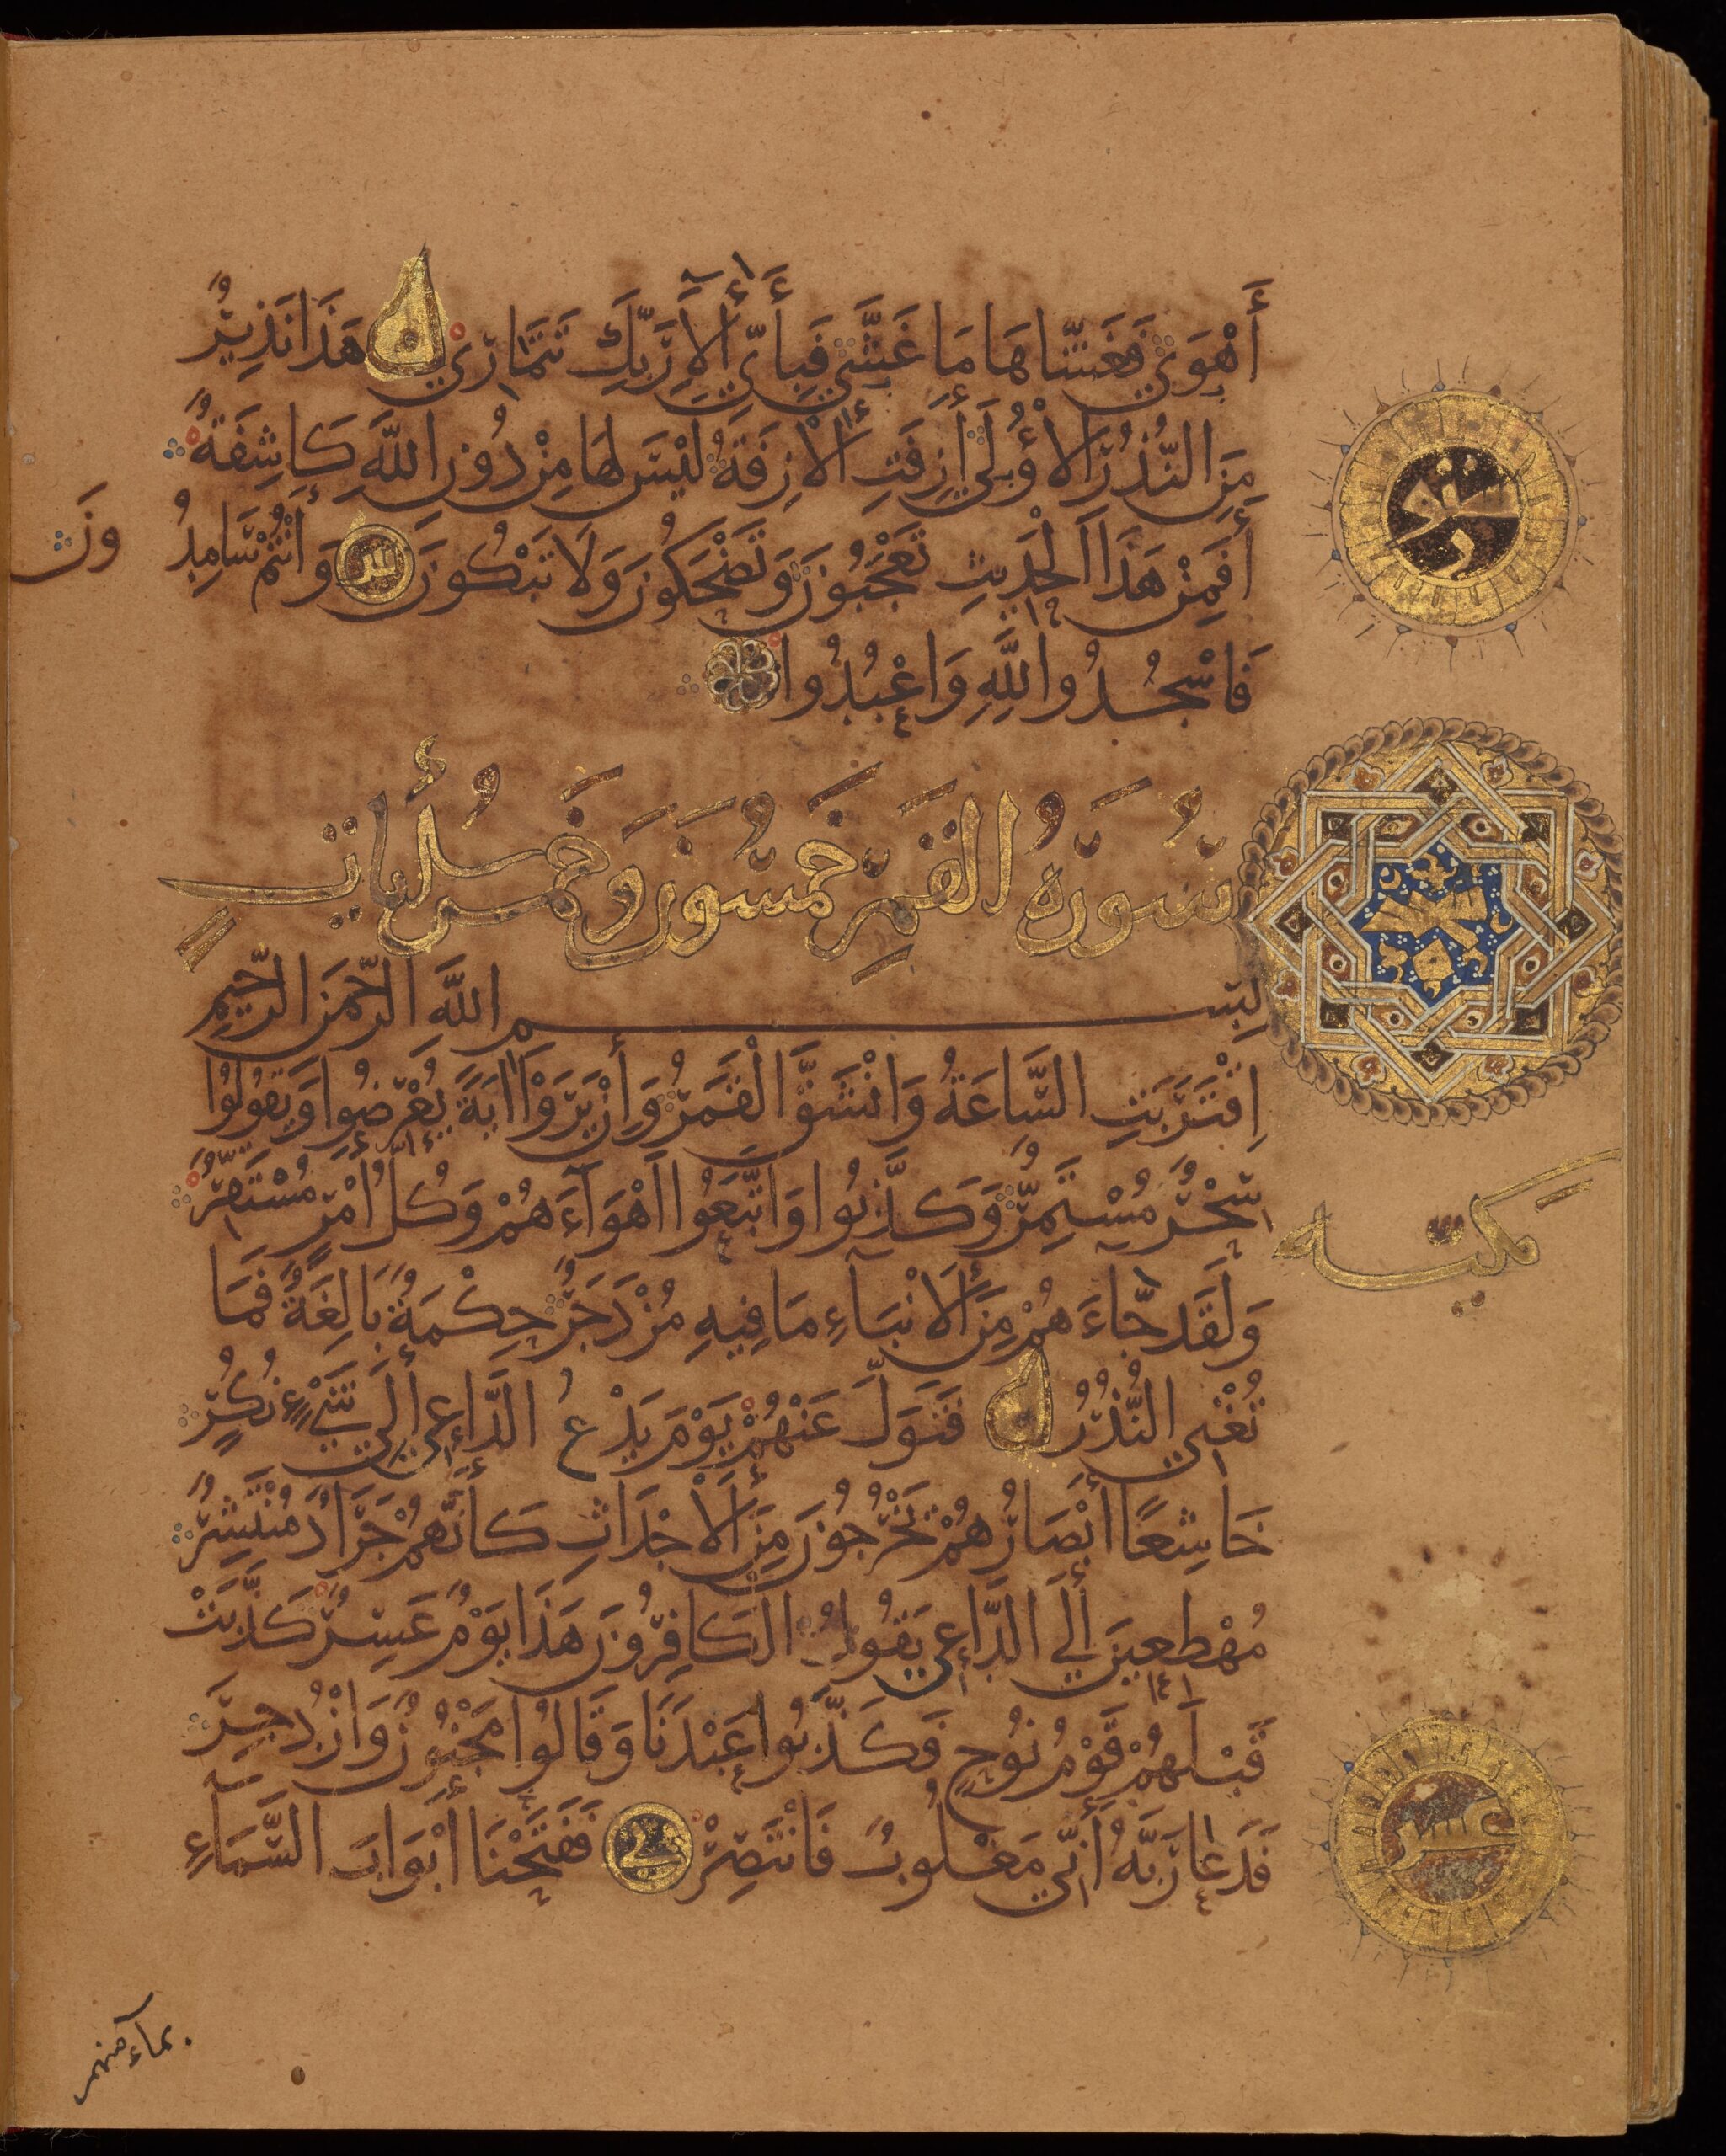 أَهْوَي فَغَشّاهَا مَا غَشَّي فَبِأَيِّ أَلَآءِ رَبِّكَ تَتَمَارَي هَذَا نَذِيرٌ
مِنَ النُّذُرِ الْأُوْلَي أَزِفَتِ الْأزِفَةُ لَيْسَ لَهَا مِنْ دُوْنِ اللَّهِ كَاشِفَةٌ
أَفَمِنْ هَذَا الْحَدِيثِ تَعْجَبُونَ وَتَضْحَكُونَ وَلَا تَبْكُونَ وَأَنْتُمْ سَامِدُ
ونَ
فَاسْجُدُوا لِلَّهِ وَاعْبُدُوا
سُورَةُ الْقَمَرِ خَمْسُونَ وَخَمْسُ أيَاتٍ
بِسْمِ اللَّهِ الرَّحْمَنِ الرَّحِيمِ
مكيّة
اِقْتَرَبَتِ السَّاعَةُ وَانْشَقَّ الْقَمَرُ وَإِنْ يَرَوْا أيَةً يُعْرِضُوا وَيَقُولُوا
سِحْرٌ مُسْتَمِرٌّ وَكَذَّبُوا وَاتَّبَعُوا أَهْوَآءَهُمْ وَكُلُّ أَمْرٍ مُسْتَقِرٌّ
وَلَقَدْ جَّاءَهُمْ مِنَ الْأَنْبَآءِ مَا فِيهِ مُزْدَجَرٌ حِكْمَةٌ بَالِغَةٌ فَمَا
تُغْنِي النُّذُرُ فَتَوَلَّ عَنْهُمْ يَوْمَ يَدْعُ الدَّاعِي إِلَي شَيْءٍ نُكُرٍ
خَاشِعًا أَبْصَارُهُمْ يَخْرُجُونَ مِنَ الْأَجْدَاثِ كَأَنَّهُمْ جَرَادٌ مُنْتَشِرٌ
مُهْطِعِينَ إِلَي الدَّاعِي يَقُولُ الْكَافِرُونَ هَذَا يَوْمٌ عَسِرٌ كَذَّبَتْ
قَبْلَهُمْ قَوْمُ نُوحٍ فَكَذَّبُوا عَبْدَنَا وَقَالُوا مَجْنُونٌ وَازْدُجِرَ
فَدَعَا رَبَّهُ أَنِّي مَغْلُوبٌ فَانْتَصِرْ فَفَتَحْنَا أَبْوَابَ السَّمَآءِ
عشر
بماء منهمر